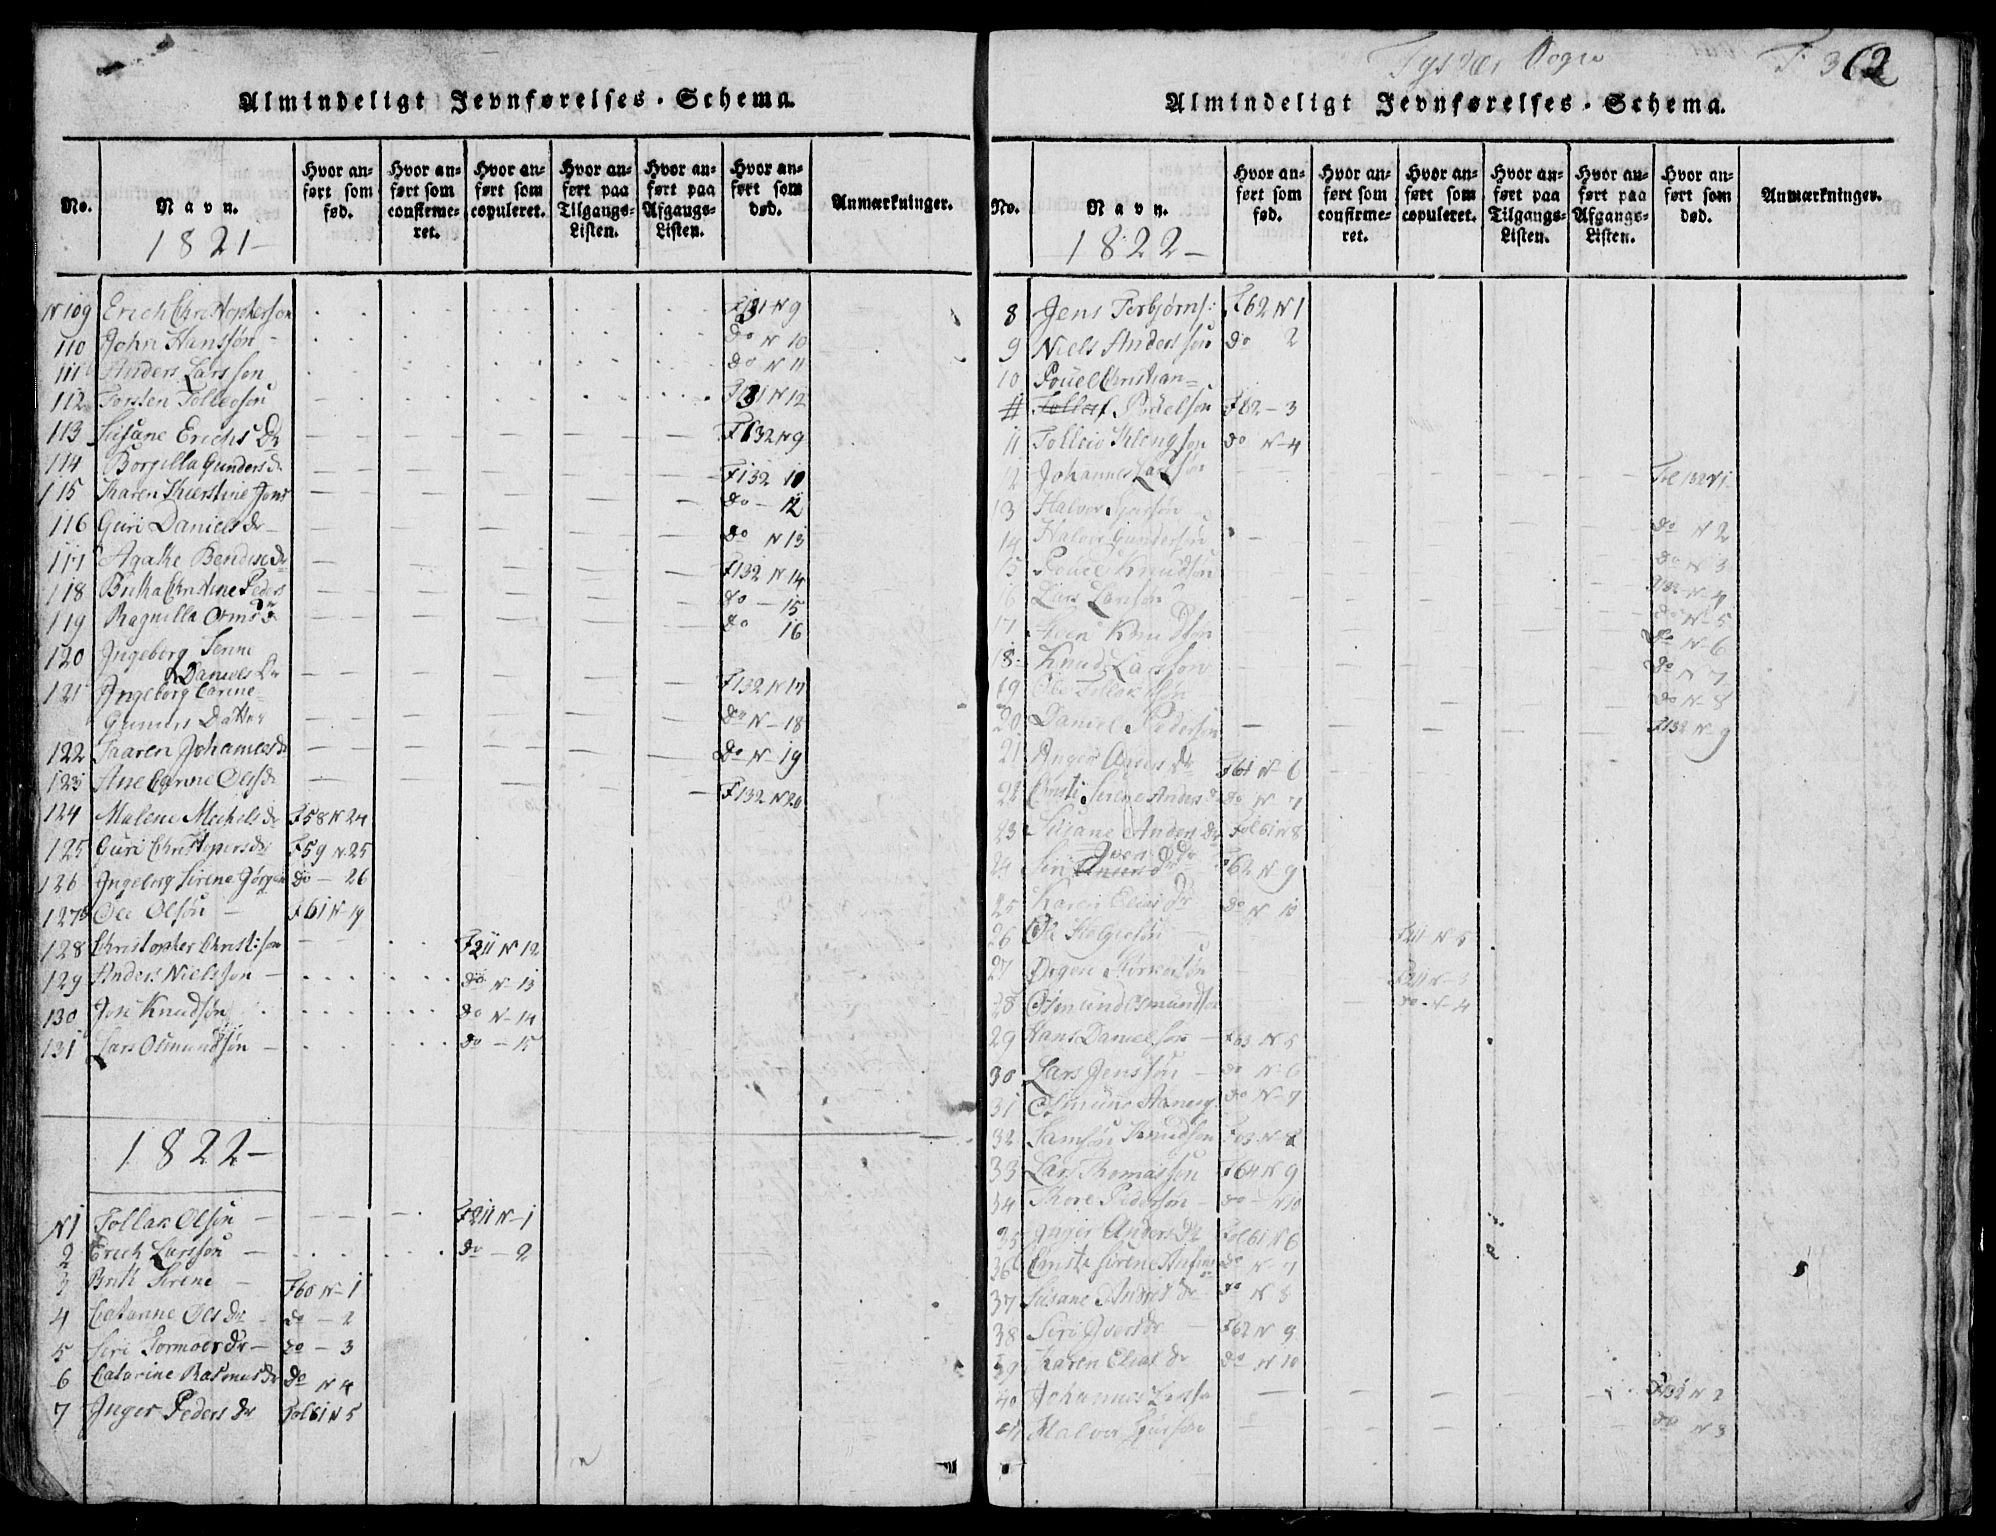 Almindeligt Jevnførelses-Schema.
No.
Navn.
Hvor an-ført som fød.
Hvor an-ført som confirme-ret.
Hvor an-ført som copuleret.
Hvor an-ført paa Tilgangs-Listen.
Hvor an-ført paa Afgangs-Listen.
Hvor an-ført som død.
Anmærkninger.
1821-
N 109 Erich Christopherson F131 N 9
110 John Hansson do N 10
111 Anders Larsson do N 11
112 Torsten Tollevson F131 N 12
113 Susane Erichs Dr F132 N 9
114 Borgilla Gunders dr F132 10
115 Karen Kierstine Jons do - 12
116 Guri Daniels dr do N 13
117 Agathe Bendixdr F132 N 14
118 Brita Christine Peders dr do - 15
119 Ragnilla Orms dr do 16
120 Ingeborg Serine
Daniels dr F132 N 17
121 Ingeborg Carine
Gunners Datter do N - 18
122 Taaren Johannesdr do N - 19
123 Ane Carine Olsdr F132 N 20
124 Malene Michelsdr F58 N 24
125 Guri Christophersdr F59 N 25
126 Ingeborg Sirene Jørgen do - 26
127 Ole Olson F61 N - 19
128 Christopher Christ:son F211 N 12
129 Anders Nielsson do N - 13
130 Jon Knudson do N - 14
131 Lars Osmundson do - 15
1822-
N 1 Tollak Olson F211 N - 1
2 Erich Larsson do - 2
3 Brith Serene F60 N - 1
4 Catarine Ols dr do - 2
5 Siri Tormoersdr do - 3
6 Catarine Rasmusdr do N 4
7 Inger Peders dr Fol 61 N 5
Tysvær Sogn
F. 362
Almindeligt Jevnførelses-Schema.
No.
Navn.
Hvor an-ført som fød.
Hvor an-ført som confirme-ret.
Hvor an-ført som copuleret.
Hvor an-ført paa Tilgangs-Listen.
Hvor an-ført paa Afgangs-Listen.
Hvor an-ført som død.
Anmærkninger.
1822-
8 Jens Torbjørns: F62 N 1
9 Niels Andersson do 2
10 Pouel Christian=
11 Tollef Pouelson F62 - 3
11 Tolleiv Klengson do N - 4
12 Johannes Larson Fol 132 N 1
13 Halvor do N 2
14 Halvor Gunderson do N 3
15 Pouel Knudson F132 N - 4
16 Lars Larson do N - 5
17 Knudson do N - 6
18 Knud Larsson do N 7
19 Ole do N - 8
20 Daniel Pederson F132 N - 9
21 Inger Anders Dr F61 N - 6
22 Christi Serene Anders dr do N - 7
23 Susane Anders Dr Fol 61 N 8
24 Siri Ivers dr F62 N - 9
25 Karen Elias Dr do N 10
26 Ole F211 N - 5
27 F211 N - 3
28 Osmund Osmundson do - N - 4
29 Hans Danielson F63 N 5
30 Lars Jensson do N - 6
31 Osmund do N - 7
32 Samson Knudson F63 N 8
33 Lars Thomasson F64 N 9
34 Thore Pederson do - N 10
35 Inger Anders Dr Fol 61 N 6
36 Christi Sirene do N - 7
37 Susane Anders dr do N 8
38 Siri Ivers dr F62 N 9
39 Karen Elias dr do N 10
40 Johannes Larso F132 N 2
41 Halvor do N 3